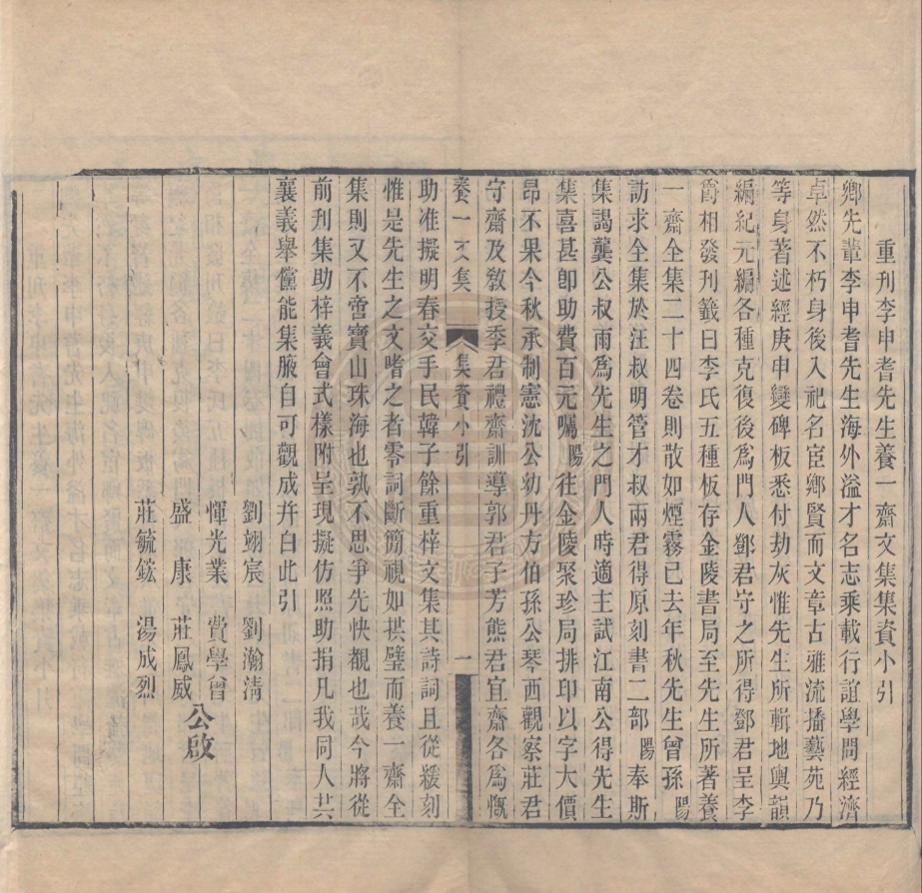 重刊李申耆先生養一齋文集集資小引
鄉先輩李申耆先生海外溢才名志乘載行誼學問經濟
卓然不朽身後入祀名宦鄉賢而文章古雅流播藝苑乃
等身著述經庚申變碑板悉付劫灰惟先生所輯地輿韻
編紀元編各種克復後爲門人鄧君守之所得鄧君呈李
爵相發刊籤曰李氏五種板存金陵書局至先生所著養
一齋全集二十四卷則散如煙霧已去年秋先生曾孫陽
訪求全集於汪叔明管才叔兩君得原刻書二部陽奉斯
集謁龔公叔雨爲先生之門人時適主試江南公得先生
集喜甚卽助費百元囑陽往金陵聚珍局排印以字大價
昂不果今秋承制憲沈公幼丹方伯孫公琴西觀察莊君
守齋及敎授季君禮齋訓導郭君子芳熊君宜齋各爲慨
養一文集 集資小引 一
助准擬明春交手民韓子餘重梓文集其詩詞且從緩刻
惟是先生之文嗜之者零詞斷簡視如拱璧而養一齋全
集則又不啻寶山珠海也孰不思爭先快覩也哉今將從
前刋集助梓義會式樣附呈現擬仿照助捐凡我同人共
襄義舉黨能集腋自可觀成幷白此引
劉翊宸 劉瀚清
惲光業 費學曾
盛康 莊鳳威 公啟
莊毓鋐 湯成烈